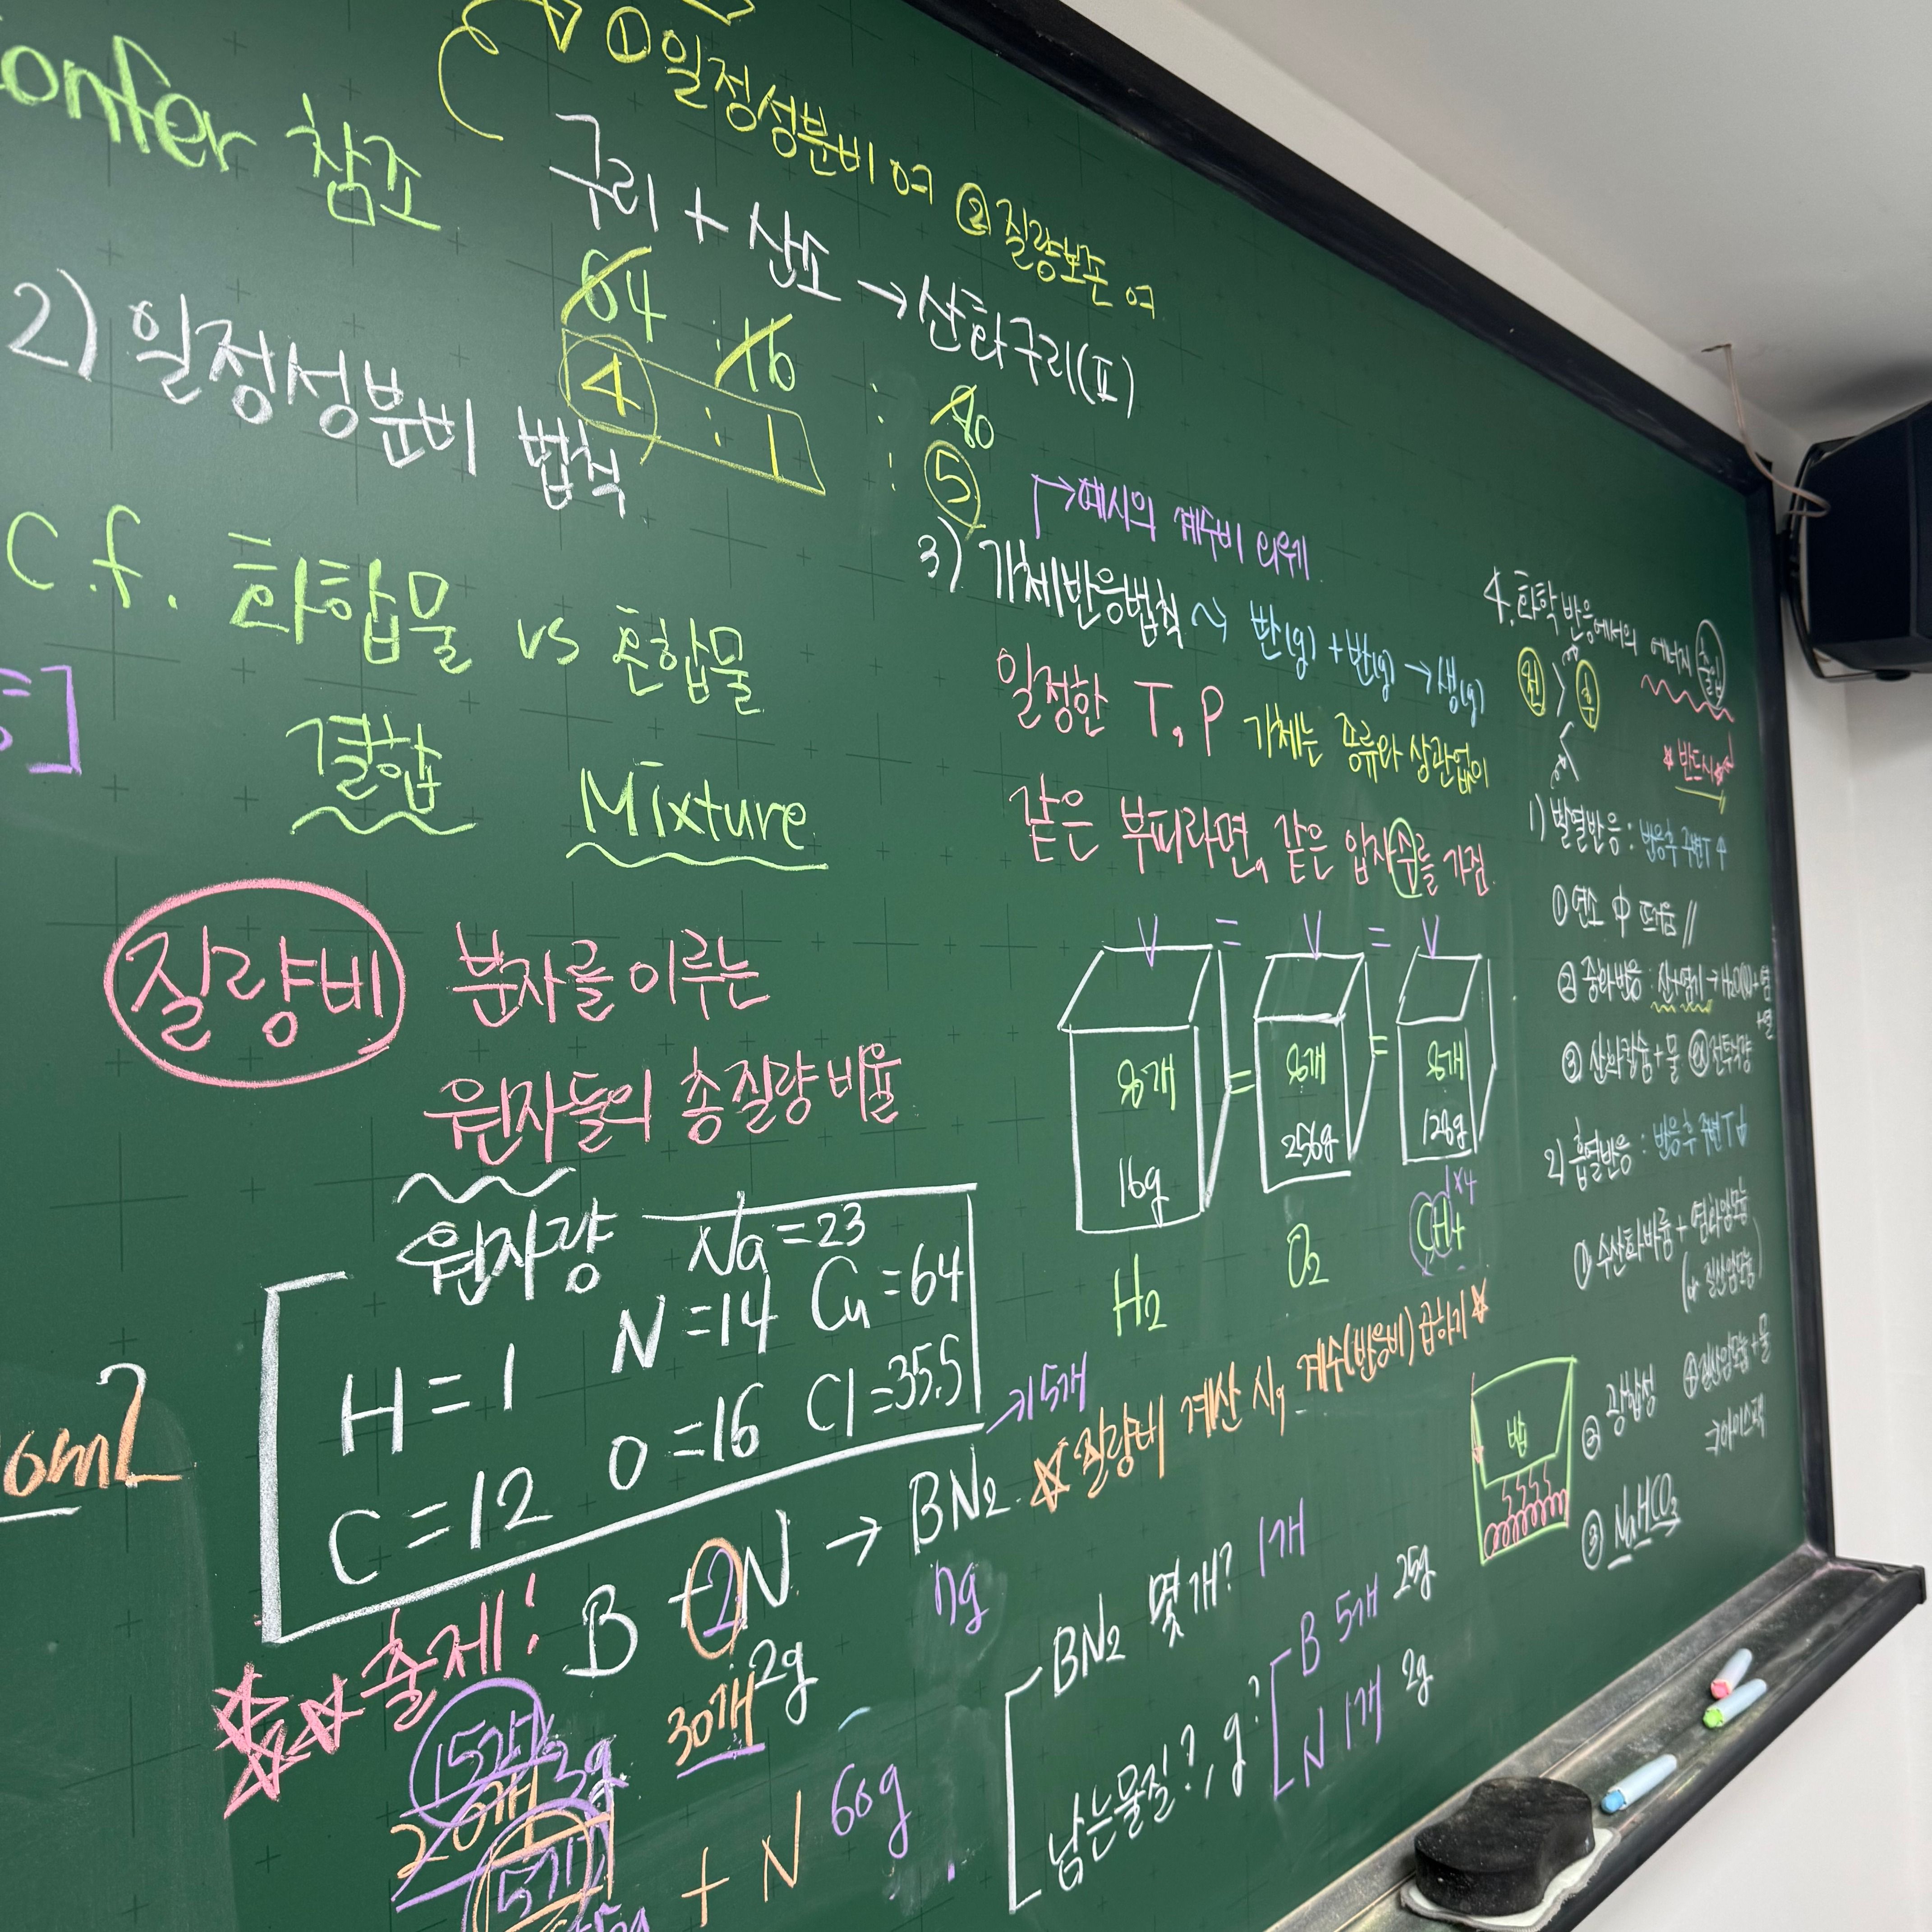 confer 참조
① 일정성분비 여 ② 질량보존 여
구리 + 산소 → 산화구리(Ⅱ)
64 : 16 : 80
4 : 1 : 5
2) 일정성분비 법칙
C.f. 화합물 vs 혼합물
결합 Mixture
질량비 분자를 이루는
원자들의 총 질량 비율
원자량 Na = 23
H = 1 N = 14 Cu = 64
C = 12 O = 16 Cl = 35.5
출제! B + 2N → BN2
→ 15개
3g 2g 7g
15개 30개
20개
5개
+ N 60g
→ 예시의 계수비 외우기
3) 기체반응법칙 ~> 반(g) + 반(g) → 생(g)
일정한 T, P 기체는 종류와 상관없이
같은 부피라면, 같은 입자수를 가짐
V = V = V
8개 = 8개 = 8개
16g 256g 128g
H2 O2 CH4
1×4
☆ 질량비 계산 시, 계수(반응비) 곱하기 ☆
BN2 몇 개? 1개
남는물질?, g?
B 5개 25g
N 1개 2g
4. 화학 반응에서의 에너지 출입
전 > 후
<
* 반드시
1) 발열반응 : 반응후 주변T ↑
① 연소 中 뜨거움 //
② 중화반응 : 산+염기 → H2O(l) + 열
③ 산화칼슘 + 물 ex 전투식량
+열
2) 흡열반응 : 반응후 주변T ↓
① 수산화바륨 + 염화암모늄
(or 질산암모늄)
② 광합성 ④ 질산암모늄 + 물
→ 아이스팩
③ NaHCO3
밥